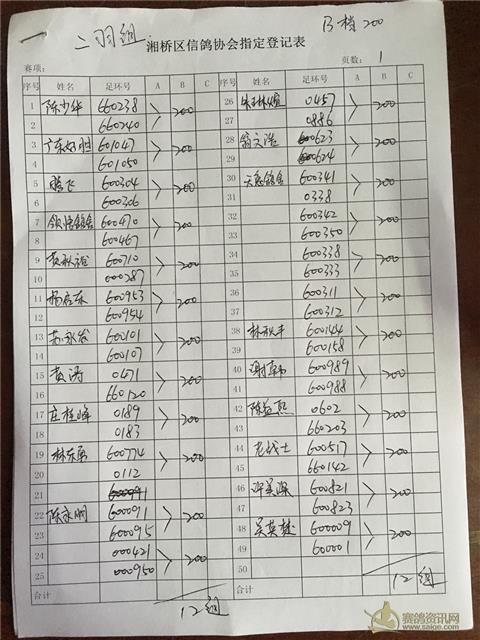 一 二羽组 B档200
湘桥区信鸽协会指定登记表
赛项: 页数: 1
序号 姓名 足环号 A B C
1 陈少华 660238 > 200
2 660240
3 广东好胜 601047 > 200
4 601050
5 腾飞 600304 > 200
6 600306
7 领悟鸽舍 600470 > 200
8 600467
9 黄秋裕 600710 > 200
10 000287
11 杨应东 600953 > 200
12 600954
13 苏永发 600101 > 200
14 600107
15 黄涛 0471 > 200
16 660120
17 庄桂峰 0189 > 200
18 0183
19 林东勇 600774 > 200
20 0112
21
22 陈永炯 600091 > 200
23 600095
24 000421 > 200
25 000950
合计 12组
序号 姓名 足环号 A B C
26 0457 > 200
27 0886
28 翁文浩 600623 > 200
29 600624
30 天意鸽舍 600341 > 200
31 0338
32 600342 > 200
33 600350
34 600338 > 200
35 600333
36 600311 > 200
37 600312
38 林秋丰 600144 > 200
39 600158
40 600989 > 200
41 600988
42 陈益熙 0602 > 200
43 660203
44 老战士 600517 > 200
45 660142
46 600821 > 200
47 600823
48 吴英楚 600009 > 200
49 600001
50
合计 12组
赛鸽资讯网
www.saige.com